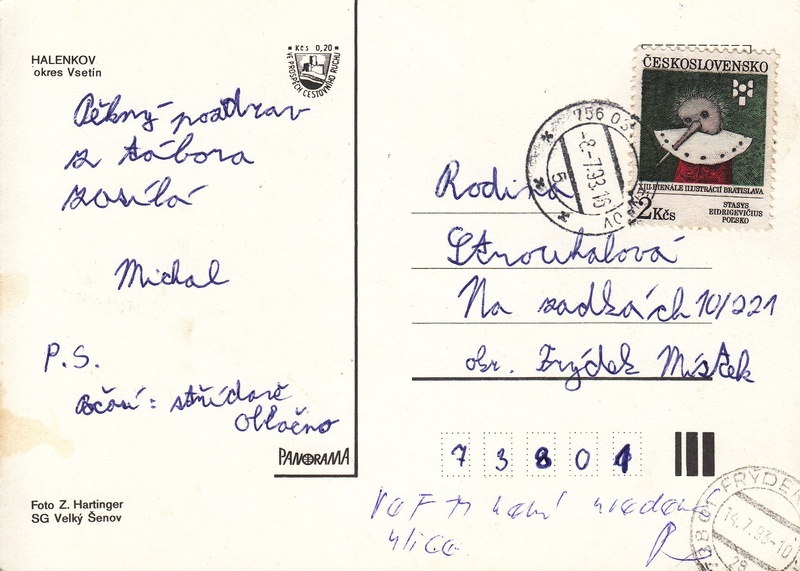 HALENKOV
okres Vsetín
Kčs 0,20
VE PROSPĚCH CESTOVNÍHO RUCHU
Pěkný pozdrav
z tábora
zasílá
Michal
P.S.
Počasí: střídavě
oblačno
PANORAMA
Foto Z. Hartinger
SG Velký Šenov
ČESKOSLOVENSKO
XIII. BIENÁLE ILUSTRÁCIÍ BRATISLAVA
2 Kčs
STASYS
EIDRIGEVIČIUS
POĽSKO
756 03
-8.-7.93.16
5
Rodina
Strouhalová
Na sadkách 10/221
okr. Frýdek Místek
73801
V F M není uvedená
ulice
FRÝDEK
14.7.93-10